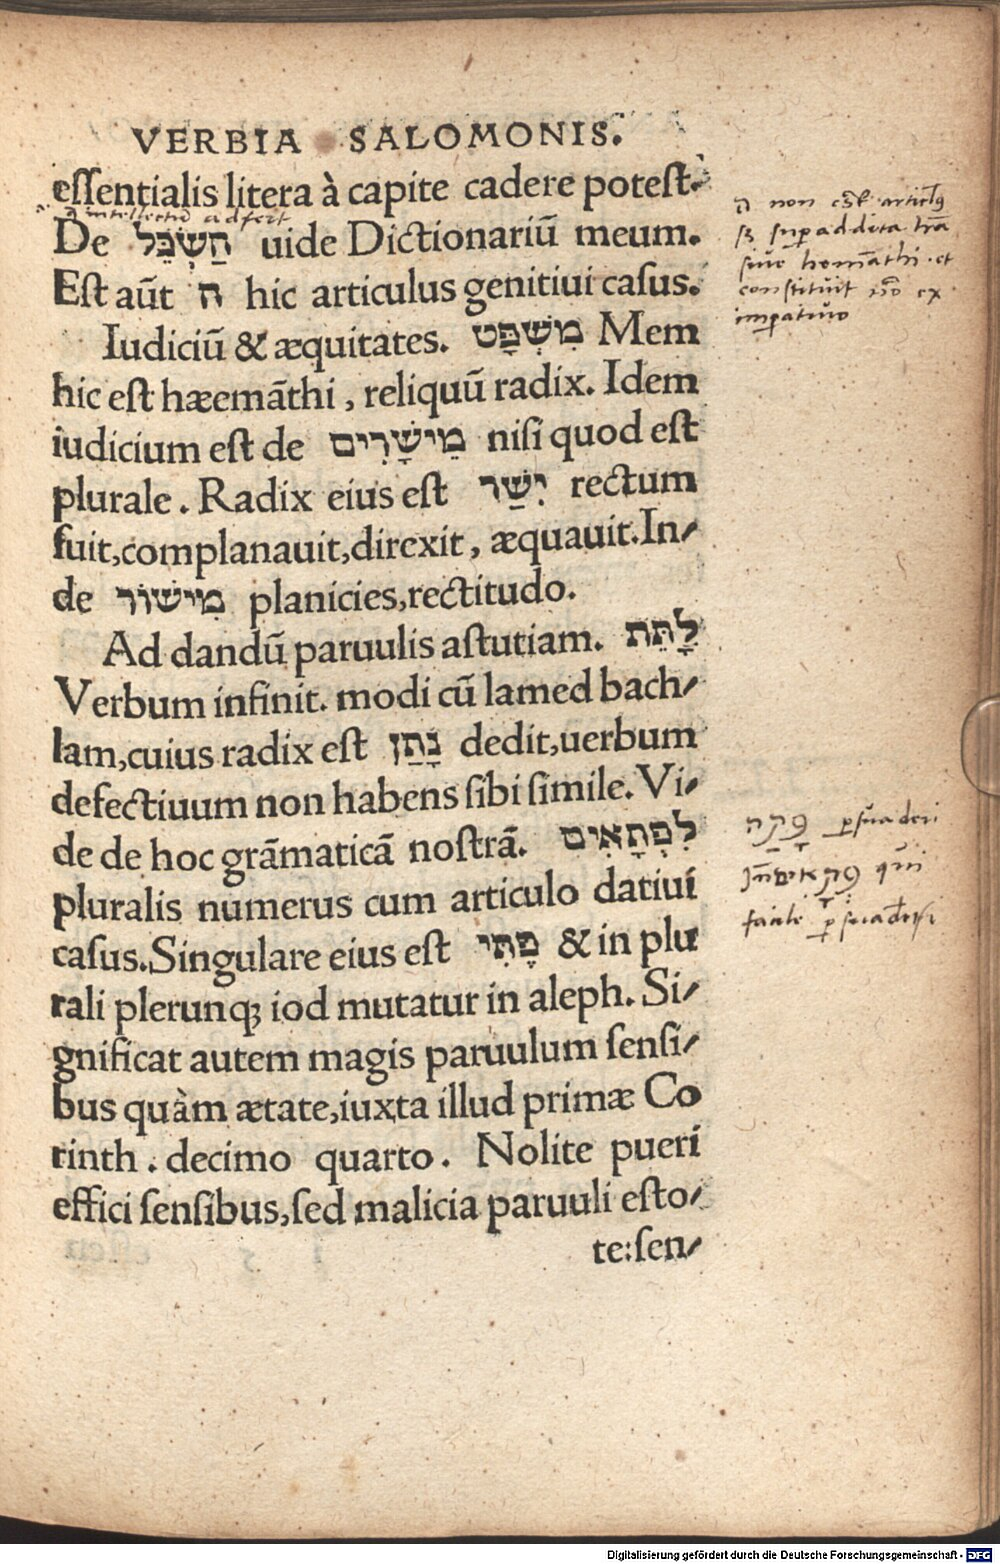 VERBIA SALOMONIS.
eſſentialis litera à capite cadere poteſt.
intellectū adfert
De הַשְׂכֵּל uide Dictionariū meum.
Eſt aūt ה hic articulus genitiui caſus.
Iudiciū & æquitates. מִשְׁפָּט Mem
hic eſt hæemāthi, reliquū radix. Idem
iudicium eſt de מֵישָׁרִים niſi quod eſt
plurale. Radix eius eſt יָשַׁר rectum
fuit, complanauit, direxit, æquauit. In-
de מִישׁוֹר planicies, rectitudo.
Ad dandū paruulis aſtutiam. לָתֵת
Verbum infinit. modi cū lamed bach-
lam, cuius radix eſt נָתַן dedit, uerbum
defectiuum non habens ſibi ſimile. Vi-
de de hoc grāmaticā noſtrā. לִפְתָאִים
pluralis numerus cum articulo datiui
caſus. Singulare eius eſt פֶתִי & in plu
rali plerunq; iod mutatur in aleph. Si-
gnificat autem magis paruulum ſenſi-
bus quàm ætate, iuxta illud primæ Co
rinth. decimo quarto. Nolite pueri
effici ſenſibus, ſed malicia paruuli eſto-
te: ſen-
ה non articulꝰ
ſuperaddita
ſiue hemāthi et
conſtituit ex
imperatiuo
פָתָה perſuaderi
qui
facile
Digitalisierung gefördert durch die Deutsche Forschungsgemeinschaft - DFG